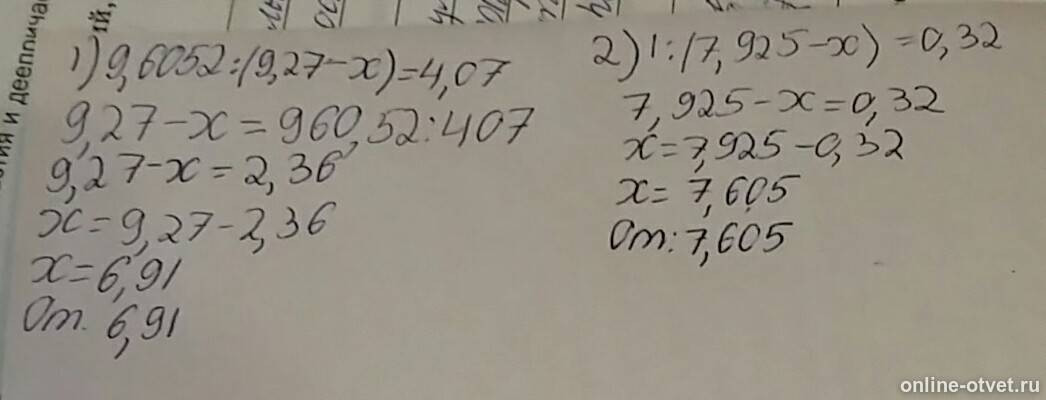 1) 9,6052:(9,27-x)=4,07
9,27-x=960,52:407
9,27-x=2,36
x=9,27-2,36
x=6,91
От. 6,91
2) 1:(7,925-x)=0,32
7,925-x=0,32
x=7,925-0,32
x=7,605
От: 7,605
тия и дееплича
ий,
online-otvet.ru